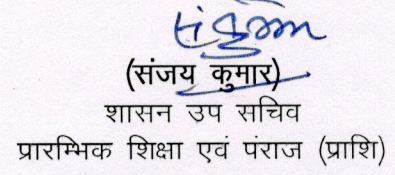 (संजय कुमार)
शासन उप सचिव
प्रारम्भिक शिक्षा एवं पंराज (प्राशि)